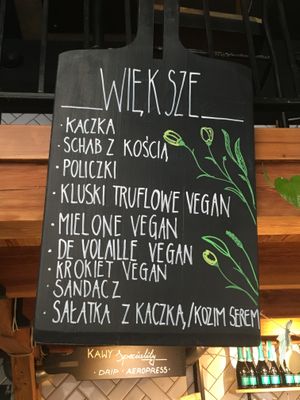 WIĘKSZE
· KACZKA
· SCHAB Z KOŚCIĄ
· POLICZKI
· KLUSKI TRUFLOWE VEGAN
· MIELONE VEGAN
· DE VOLAILLE VEGAN
· KROKIET VEGAN
· SANDACZ
· SAŁATKA Z KACZKĄ/KOZIM SEREM
KAWY Speciality
· DRIP · AEROPRESS ·